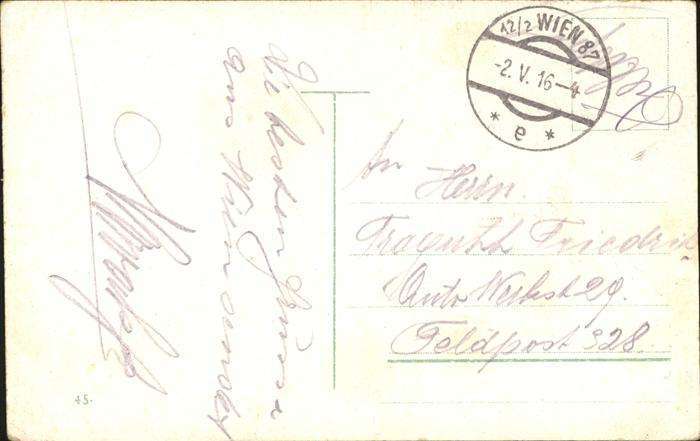 Die besten Grüsse
aus Wien sendet
12/2 WIEN 87
-2.V.16-4
* e *
An
Herrn
Friedrich
Auto Werkst 29.
Feldpost 328.
45.